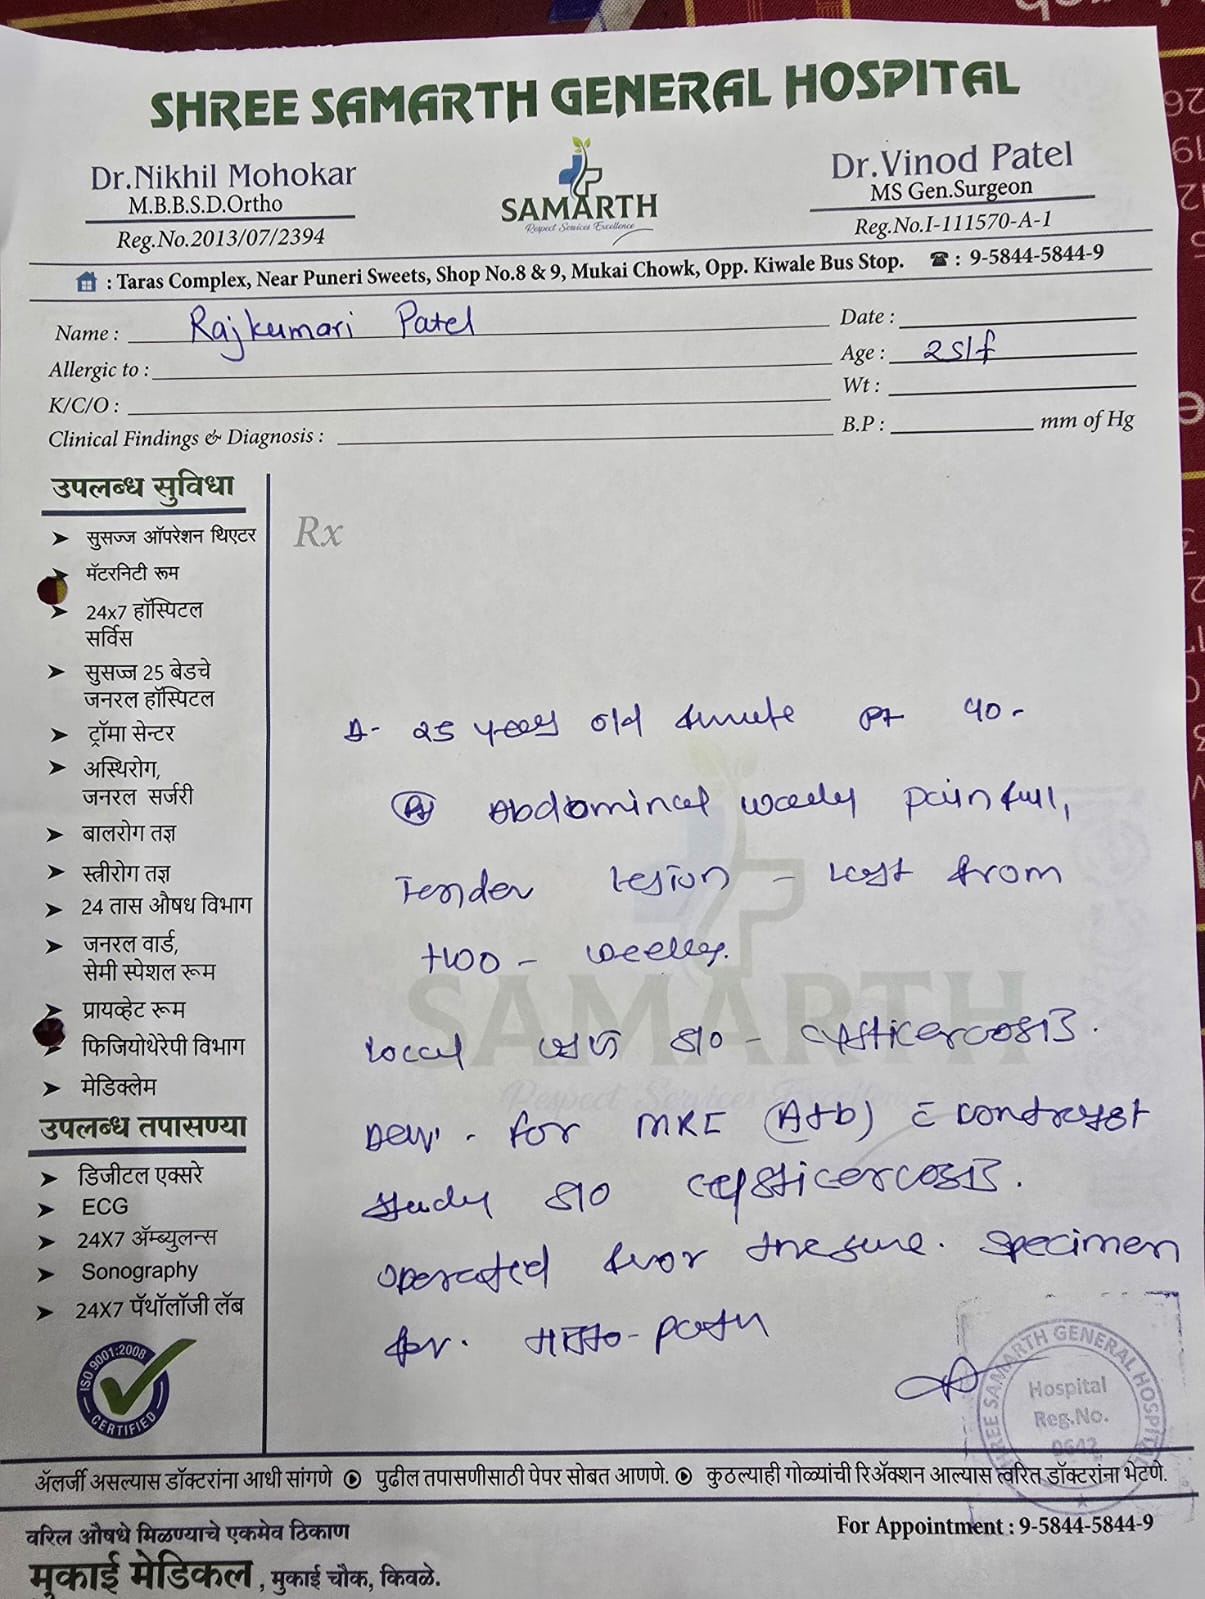 SHREE SAMARTH GENERAL HOSPITAL
Dr.Nikhil Mohokar
M.B.B.S.D.Ortho
Reg.No.2013/07/2394
SAMARTH
Respect Services Excellence
Dr.Vinod Patel
MS Gen.Surgeon
Reg.No.I-111570-A-1
: Taras Complex, Near Puneri Sweets, Shop No.8 & 9, Mukai Chowk, Opp. Kiwale Bus Stop. ☎ : 9-5844-5844-9
Name : Rajkumari Patel
Date :
Allergic to :
Age : 25/f
K/C/O :
Wt :
Clinical Findings & Diagnosis :
B.P : mm of Hg
उपलब्ध सुविधा
➤ सुसज्ज ऑपरेशन थिएटर
➤ मॅटरनिटी रूम
➤ 24x7 हॉस्पिटल
सर्विस
➤ सुसज्ज 25 बेडचे
जनरल हॉस्पिटल
➤ ट्रॉमा सेन्टर
➤ अस्थिरोग,
जनरल सर्जरी
➤ बालरोग तज्ञ
➤ स्त्रीरोग तज्ञ
➤ 24 तास औषध विभाग
➤ जनरल वार्ड,
सेमी स्पेशल रूम
➤ प्रायव्हेट रूम
➤ फिजियोथेरेपी विभाग
➤ मेडिक्लेम
उपलब्ध तपासण्या
➤ डिजीटल एक्सरे
➤ ECG
➤ 24X7 ॲम्ब्युलन्स
➤ Sonography
➤ 24X7 पॅथॉलॉजी लॅब
ISO 9001:2008
CERTIFIED
Rx
A- 25 years old female Pt
Abdominal painful,
Tender lesion - last from
two - weeks.
Local S/O - cysticercosis.
for MRI (A+b) c contrast
study S/O cysticercosis.
operated Specimen
for. Histo-path
SAMARTH
Respect Services Excellence
SHREE SAMARTH GENERAL HOSPITAL
Hospital
Reg.No.
0642
ॲलर्जी असल्यास डॉक्टरांना आधी सांगणे पुढील तपासणीसाठी पेपर सोबत आणणे. कुठल्याही गोळ्यांची रिॲक्शन आल्यास त्वरित डॉक्टरांना भेटणे.
वरिल औषधे मिळण्याचे एकमेव ठिकाण
For Appointment : 9-5844-5844-9
मुकाई मेडिकल, मुकाई चौक, किवळे.